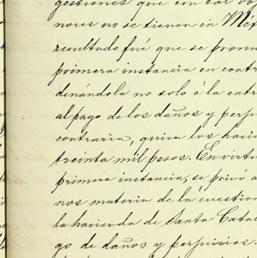 gestiones que con tal ob
nores no se tienen en Méx
resultado fué que se pronun
primera instancia en contr
denándola no solo a la entr
al pago de los daños y perju
contraria, quien los hacia
treinta mil pesos. En virtu
primera instancia, se privó a
nos materia de la cuestion
la hacienda de Santa Cata
go de daños y perjuicios.